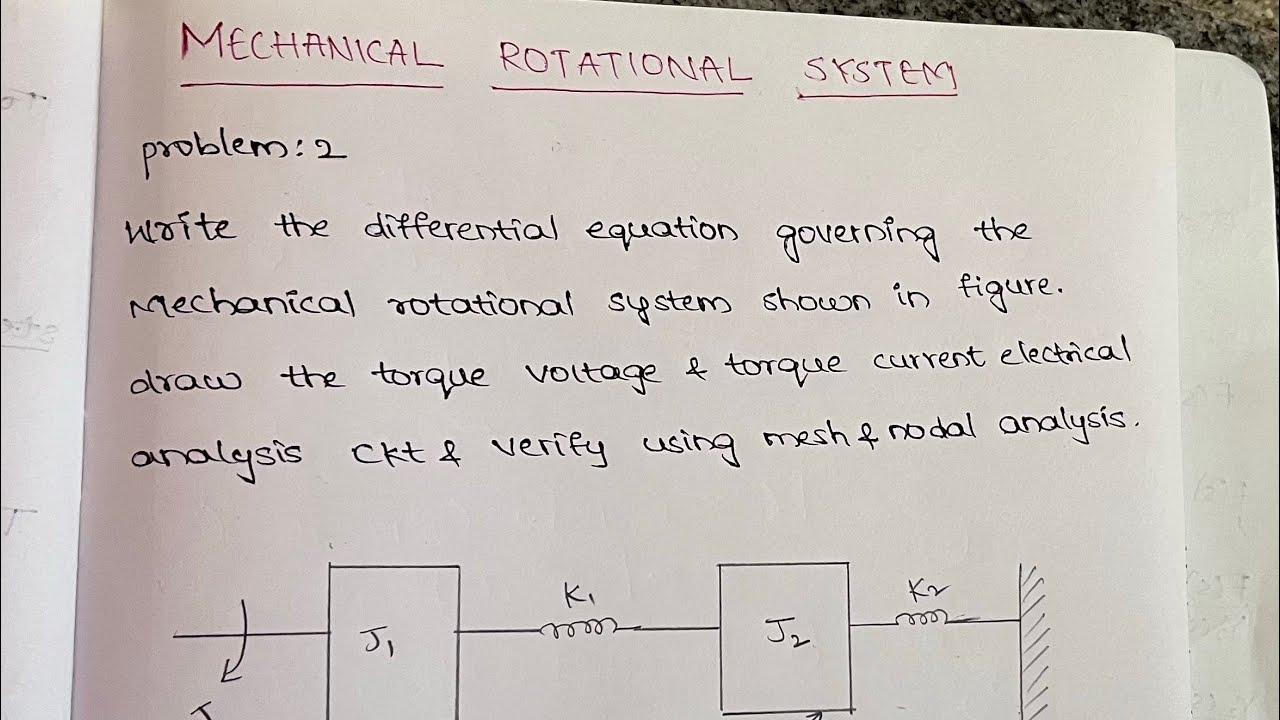 MECHANICAL ROTATIONAL SYSTEM
problem: 2
Write the differential equation governing the
Mechanical rotational system shown in figure.
draw the torque voltage & torque current electrical
analysis ckt & verify using mesh & nodal analysis.
K1 K2
J1 J2
T